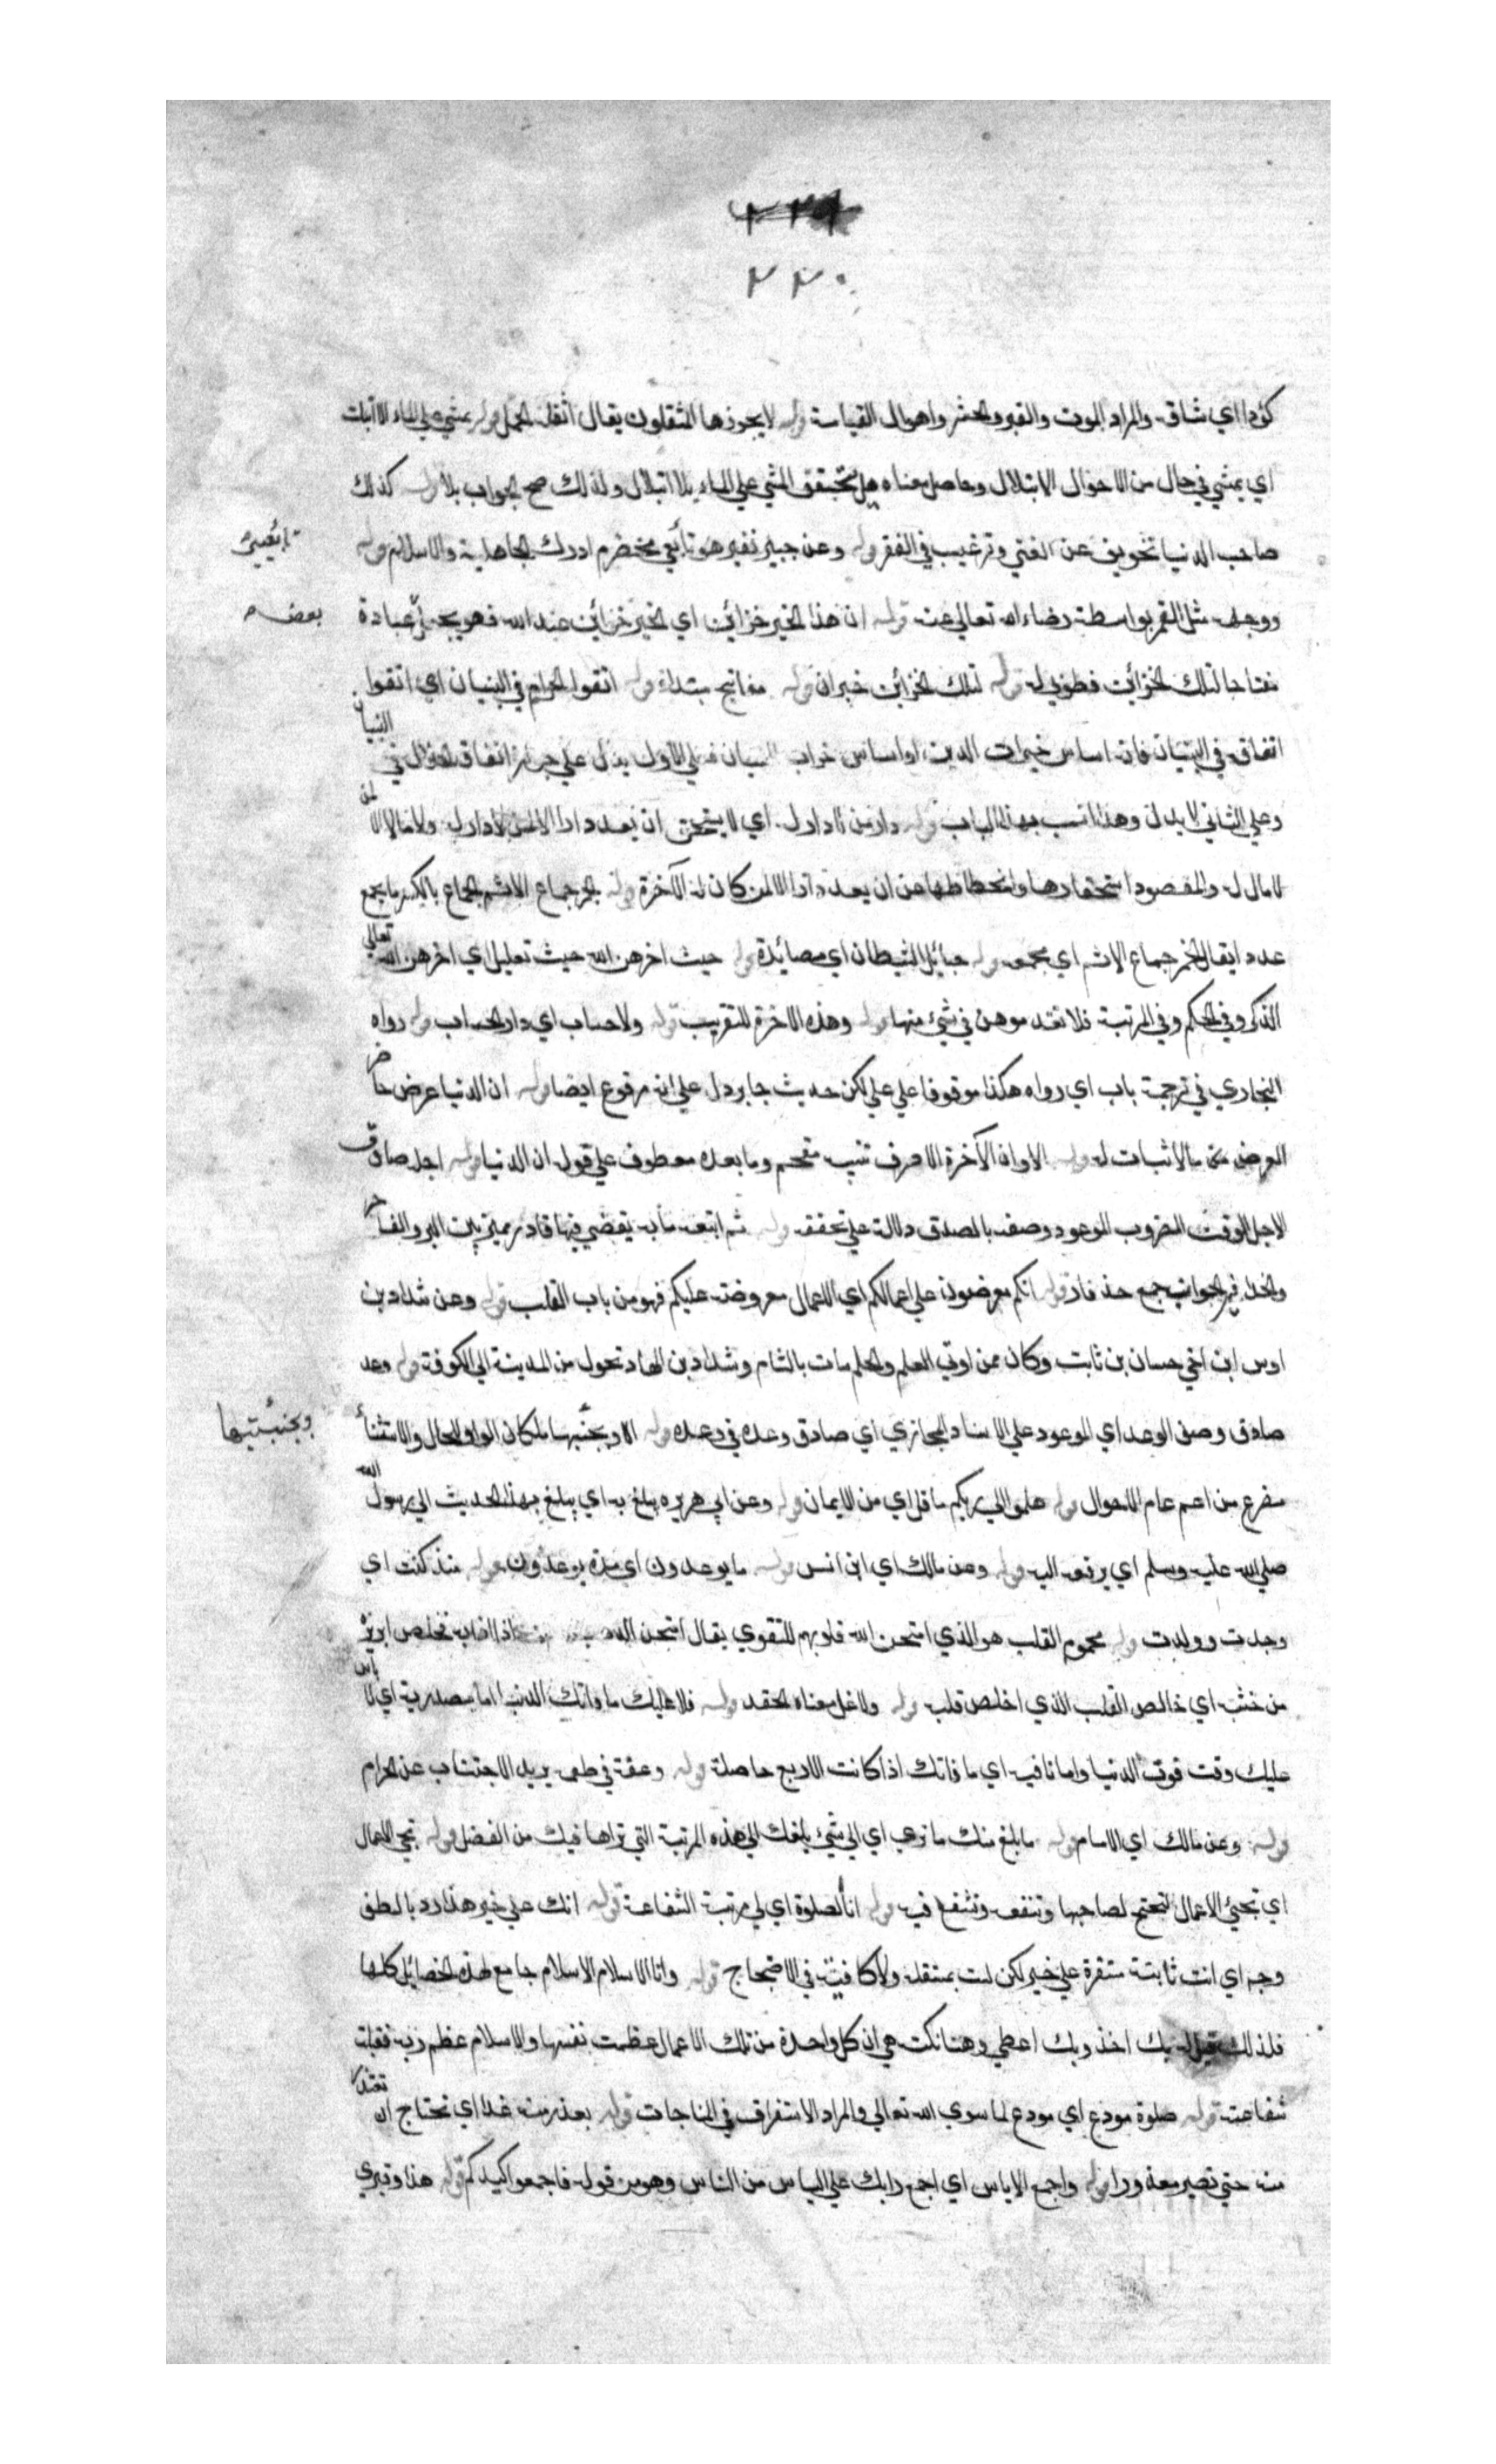 ٢٢٩
٢٢٠
كؤدا اي شاق والمراد الموت والقبر والحشر واهوال القيامة قوله لا يجوزها المثقلون يقال اثقله الحمل قوله يمشي علي الماء الا ابتلت
اي يمشي في حال من الاحوال الابتلال وحاصل معناه هل يتحقق المشي علي الماء بلا ابتلال ولذلك صح الجواب بلا قوله كذلك
صاحب الدنيا تخويف عن الغني وترغيب في الفقر قوله وعن جبير نفير هو تابعي مخضرم ادرك الجاهلية والاسلام قوله
ووجهه مثل القمر بواسطة رضاء الله تعالي عنه قوله ان هذا الخير خزائن اي الخير خزائن عند الله فهو يجعل عبادة
بعضه
مفتاحا لتلك الخزائن فطوبي له قوله لتلك الخزائن خبران قوله مفاتيح مبتداء قوله اتقوا الحرام في البنيان اي اتقوا
انفاقه في البنيان فان اساس خيرات الدين او اساس خراب البنيان فعلي الاول يدل علي جواز انفاق الحلال في البنيان
وعلي الثاني لا يدل وهذا انسب بهذا الباب قوله دار من لا دار له اي لا يستحق ان يعد دارا الا لمن لا دار له ولا مالا الا لمن
لا مال له والمقصود استحقارها وانحطاطها عن ان يعد دارا الا لمن كان له الآخرة قوله الخمر جماع الاثم الجماع بالكسر ما يجمع
عددا يقال الخمر جماع الاثم اي مجمعه قوله حبائل الشيطان اي مصائدة قوله حيث اخرهن الله حيث تعليل اي اخرهن الله تعالي
الذكر وفي الحكم وفي المرتبة فلا تقدموهن في شئ منها قوله وهذه الاخرة للتقريب قوله ولا حساب اي دار الحساب قوله رواه
البخاري في ترجمة باب اي رواه هكذا موقوفا علي علي لكن حديث جابر دل علي انه مرفوع ايضا قوله ان الدنيا عرض حاضر
العرض ما لا ثبات له قوله الا وان الآخرة الا حرف تنبيه مقحم وما بعده معطوف علي قوله ان الدنيا قوله اجل صادق
الاجل الوقت المضروب الموعود وصفه بالصدق دلالة علي تحققه قوله ثم ابتعه مابه يقضي فيها قادر يميز بين البر والفاجر
والخير الجوانب جمع حذفار قوله انكم معرضون علي اعمالكم اي الاعمال معروضة عليكم فهو من باب القلب قوله وعن شداد بن
اوس ابن اخي حسان بن ثابت وكان ممن اوتي العلم والحلم مات بالشام وشداد بن الهاد تحول من المدينة الي الكوفة قوله وعد
صادق وصف الوعد اي الموعود علي الاسناد المجازي اي صادق وعده في وعده قوله الا وبجنبتيها لمكان الواو والحال والاستثناء
وبجنبتيها
مفرع من اعم عام الاحوال قوله هلموا الي ربكم ما قل اي من الايمان قوله وعن ابي هريره يبلغ به اي يبلغ بهذا الحديث الي رسول الله
صلي الله عليه وسلم اي يرفعه اليه قوله وعن مالك اي ابن انس قوله ما يوعدون اي مدة يوعدون قوله منذ كنت اي
وجدت وولدت قوله مخموم القلب هو الذي امتحن الله قلوبهم للتقوي يقال امتحن الذهب اذا اذابه فخلص ابريزه
من خبثه اي خالص القلب الذي اخلص قلبه قوله ولا غل معناه الحقد قوله فلا عليك ما فاتك الدنيا اما مصدرية اي لا باس
عليك وقت فوت الدنيا واما نافية اي ما فاتك اذا كانت الاربع حاصلة قوله وعفة في طعمه يريد الاجتناب عن الحرام
قوله وعن مالك اي الامام قوله ما بلغ منك ما نري اي الي شئ بلغك الي هذه المرتبة التي نراها فيك من الفضل قوله تجي الاعمال
اي تجئ الاعمال لتحتج لصاحبها وتنفعه وتشفع فيه قوله انا الصلوة اي لي مرتبة الشفاعة قوله انك علي خير هذا رد بالطف
وجه اي انت ثابتة مستقرة علي خير لكن لست بمستقلة ولا كافية في الاحتجاج قوله وانا الاسلام الاسلام جامع لهذه الخصائل كلها
فلذلك قيل له بك اخذ وبك اعطي وهنا نكتة هي ان كل واحدة من تلك الاعمال عظمت نفسها والاسلام عظم ربه فقبلت
شفاعته قوله صلوة مودع اي مودع لما سوي الله تعالي والمراد الاستغراق في المناجات قوله بعذر منه غدا اي تحتاج ان تعتذر
منه حتي تصير معذورا قوله واجمع الاياس اي اجمع رايك علي الياس من الناس وهو من قوله فاجمعوا كيدكم قوله هذا وقبري